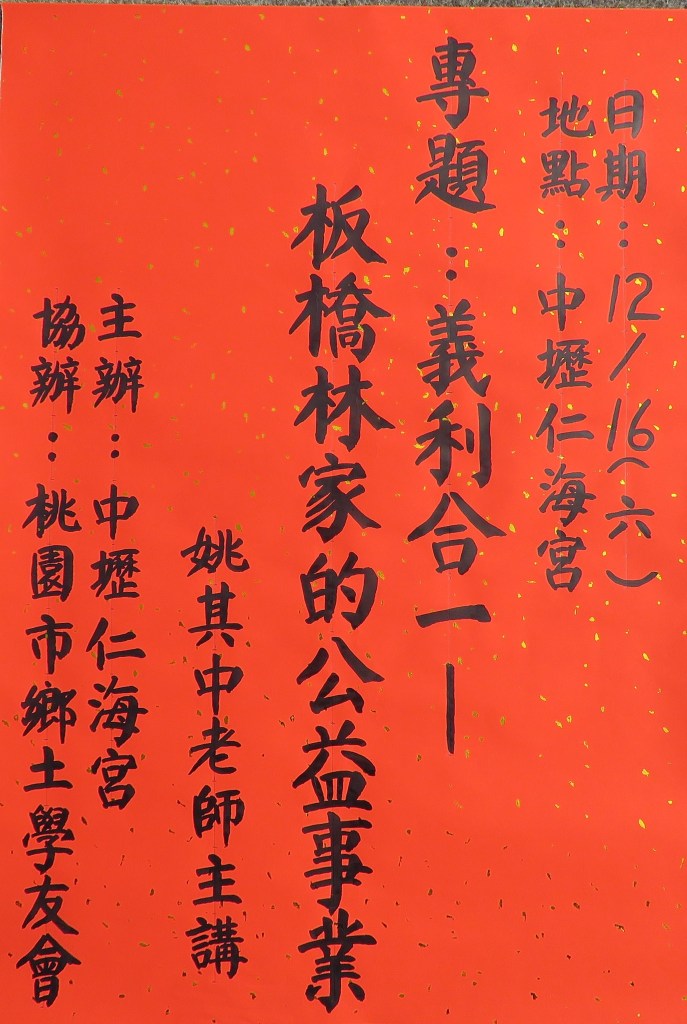 日期：12/16(六)
地點：中壢仁海宮
專題：義利合一—
板橋林家的公益事業
姚其中老師主講
主辦：中壢仁海宮
協辦：桃園市鄉土學友會